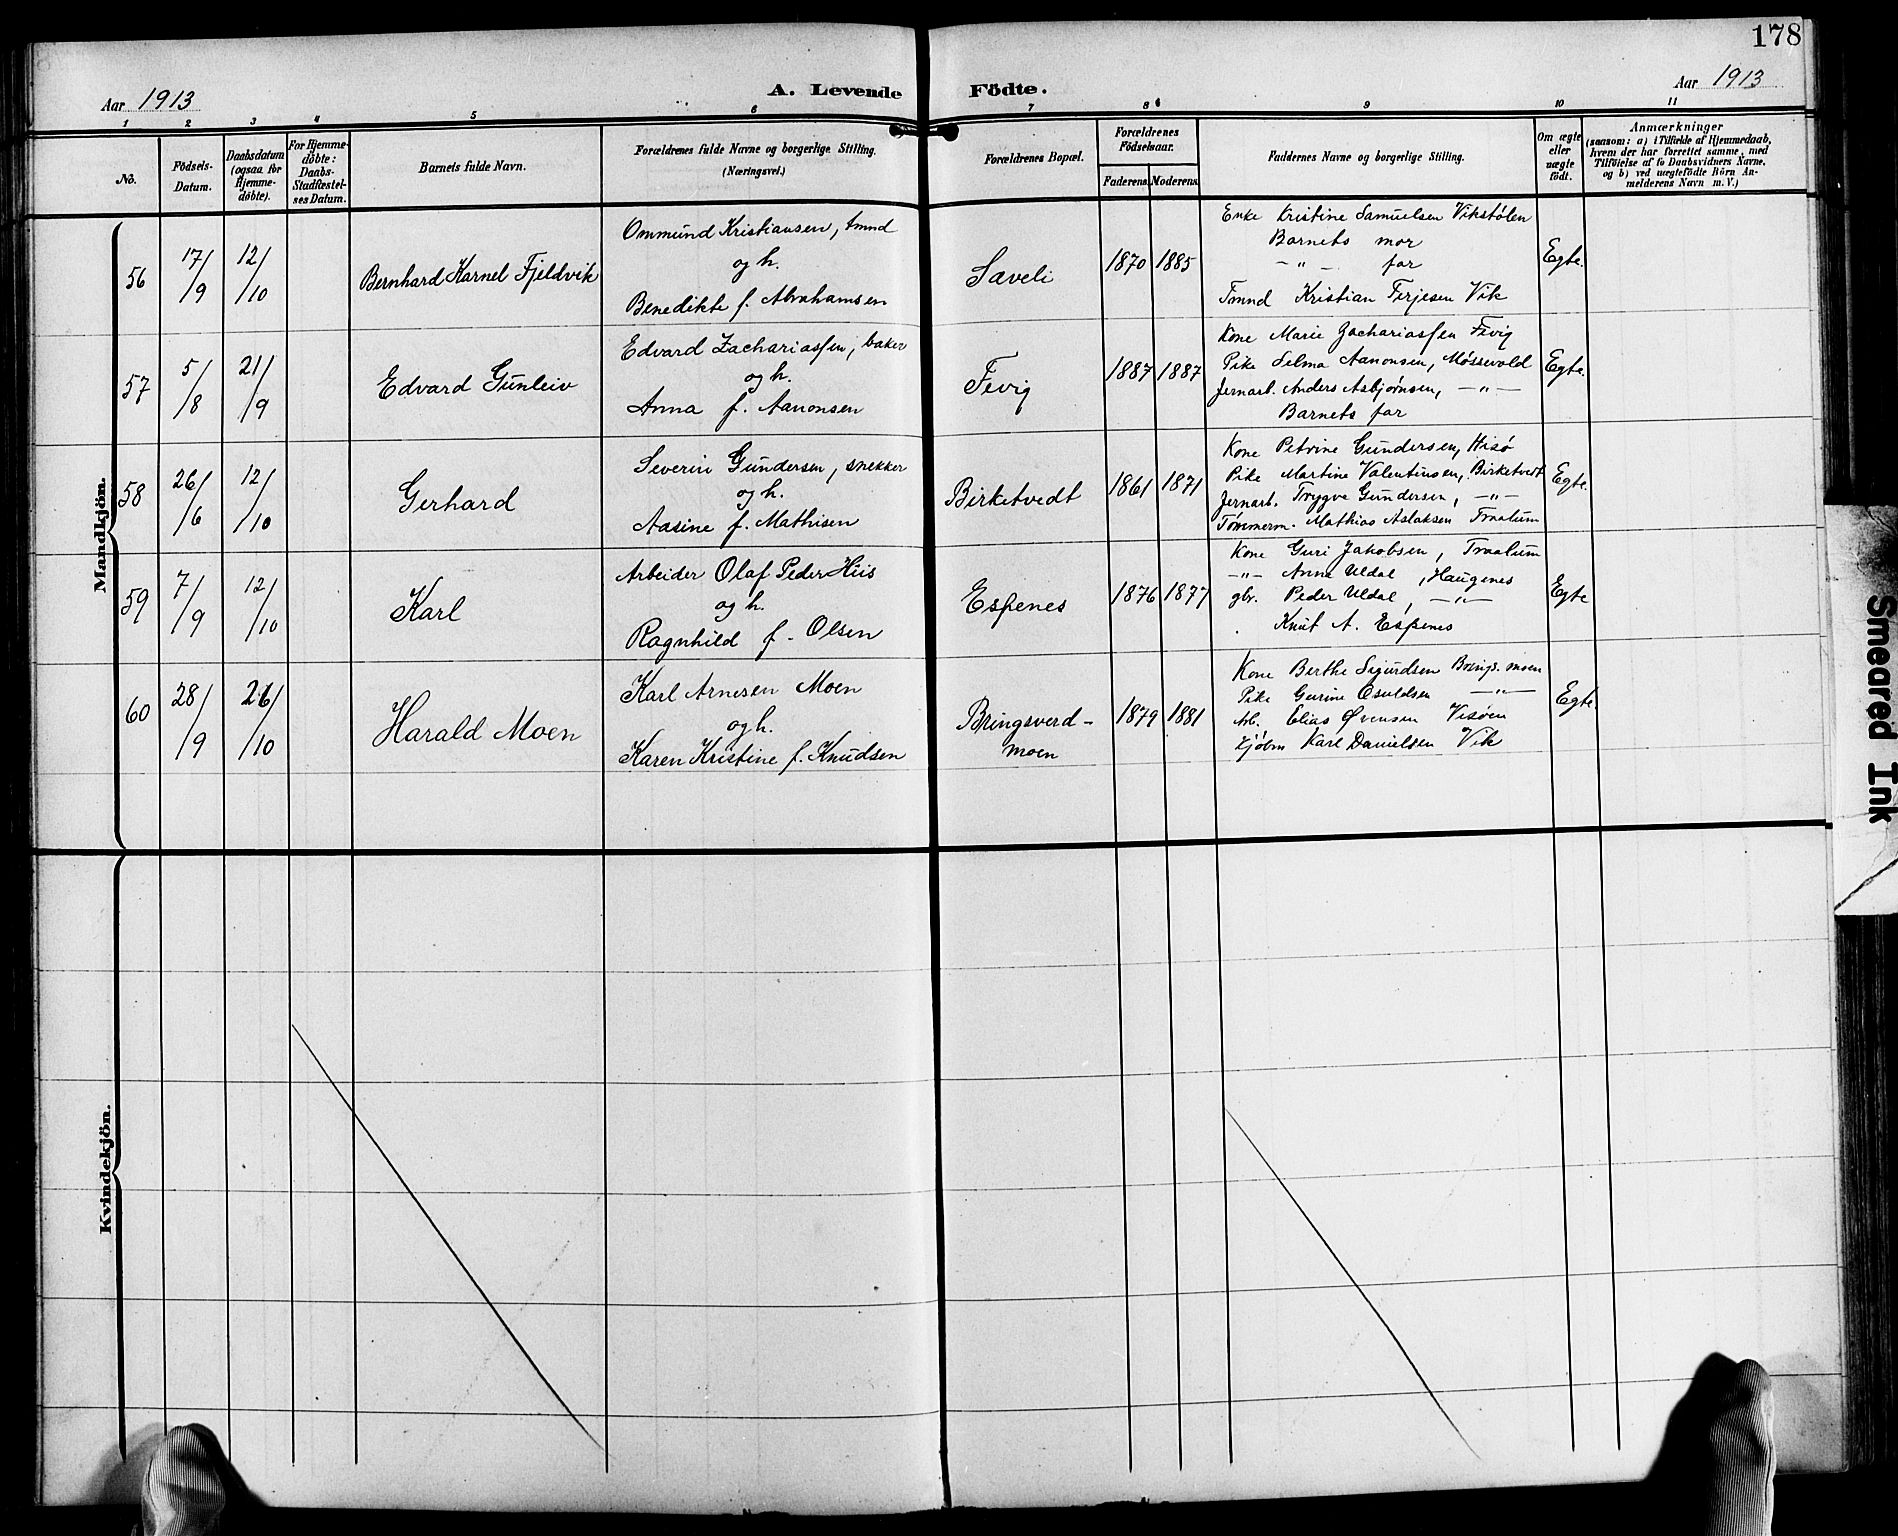 178
Aar 1913
A. Levende Födte.
Aar 1913
1 2 3 4 5 6 7 8 9 10 11
No.
Födsels-
Datum.
Daabsdatum
(ogsaa for
Hjemme-
döbte).
For Hjemme-
döbte:
Daabs-
Stadfæstel-
ses Datum.
Barnets fulde Navn.
Forældrenes fulde Navne og borgerlige Stilling.
(Næringsvei.)
Forældrenes Bopæl.
Forældrenes
Födselsaar.
Faderens. Moderens.
Faddernes Navne og borgerlige Stilling.
Om ægte
eller
uægte
födt.
Anmærkninger
(saasom: a) i Tilfælde af Hjemmedaab,
hvem der har forrettet samme, med
Tilföielse af to Daabsvidners Navne,
og b) ved uægtefödte Börn An-
melderens Navn m. V.)
Mandkjön.
56
17/9
12/10
Bernhard Karnel Fjeldvik
Ommund Kristiansen, tmnd
og h.
Benedikte f. Abrahamsen
Saveli
1870 1885
Enke Kristine Samuelsen Vikstølen
Barnets mor
-"- far
Tmnd Kristian Terjesen Vik
Egte.
57
5/8
21/9
Edvard Gunleiv
Edvard Zachariassen, baker
og h.
Anna f. Aanonsen
Fevig
1887 1887
Kone Marie Zachariassen Fevig
Pike Selma Aanonsen, Møssevold
Jernarb. Anders Asbjørnsen, -"-
Barnets far
Egte.
58
26/6
12/10
Gerhard
Severin Gundersen, snekker
og h.
Aasine f. Mathisen
Birketvedt
1861 1871
Kone Petrine Gundersen, Hisø
Pike Martine Valentinsen, Birketvedt
Jernarb. Trygve Gundersen, -"-
Tømmerm. Mathias Aslaksen Traalum
Egte.
59
7/9
12/10
Karl
Arbeider Olaf Peder Hiis
og h.
Ragnhild f. Olsen
Espenes
1876 1877
Kone Guri Jakobsen, Traalum
-"- Anna Uldal, Haugenes
gbr. Peder Uldal, -"-
Knut A. Espenes
Egte
60
28/9
26/10
Harald Moen
Karl Arnesen Moen
og h.
Karen Kristine f. Knudsen
Bringsverd-
moen
1879 1881
Kone Berthe Sigurdsen Brings.moen
Pike Gurine Osuldsen -"-
Arb. Elias Øvensen Visøen
Karl Danielsen Vik
Egte.
Kvindekjön.
Smeared Ink